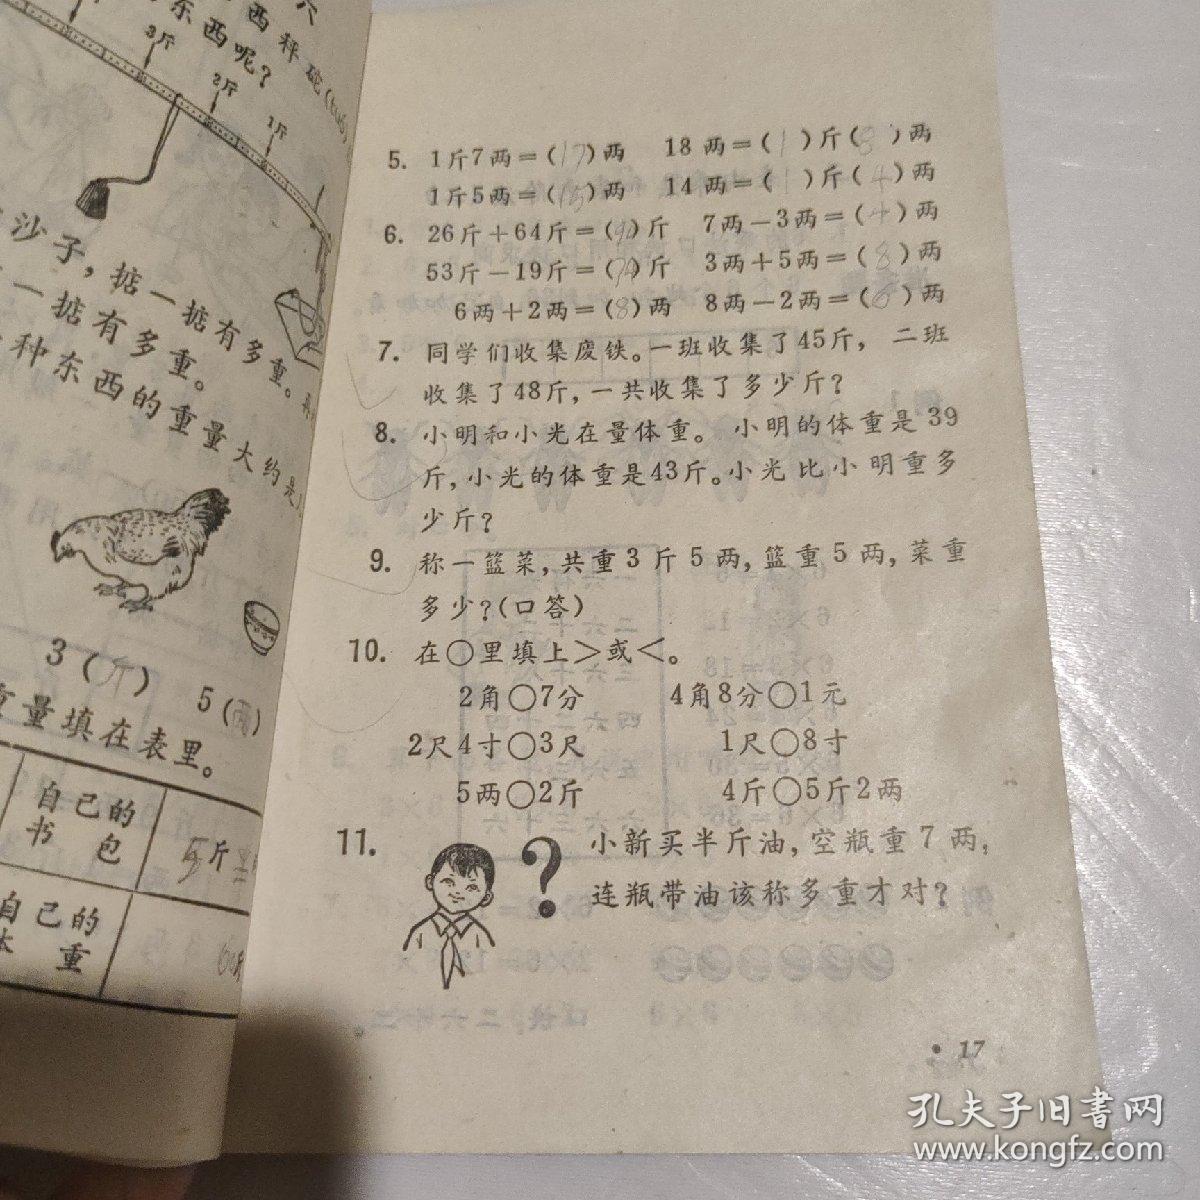 六
西秤砣(tuó)
东西呢?
3斤
2斤
1斤
沙子，掂一掂有多重。
一掂有多重。
种东西的重量大约是
3(斤) 5(两)
重量填在表里。
自己的
书 包
5斤
自己的
体 重
5. 1斤7两=(17)两 18两=(1)斤(8)两
1斤5两=(15)两 14两=(1)斤(4)两
6. 26斤+64斤=(90)斤 7两-3两=(4)两
53斤-19斤=(34)斤 3两+5两=(8)两
6两+2两=(8)两 8两-2两=(6)两
7. 同学们收集废铁。一班收集了45斤， 二班
收集了48斤，一共收集了多少斤?
8. 小明和小光在量体重。 小明的体重是39
斤，小光的体重是43斤。小光比小明重多
少斤?
9. 称一篮菜，共重3斤5两，篮重5两，菜重
多少?(口答)
10. 在○里填上>或<。
2角○7分 4角8分○1元
2尺4寸○3尺 1尺○8寸
5两○2斤 4斤○5斤2两
11. 小新买半斤油，空瓶重7两，
?
连瓶带油该称多重才对?
• 17
孔夫子旧书网
www.kongfz.com